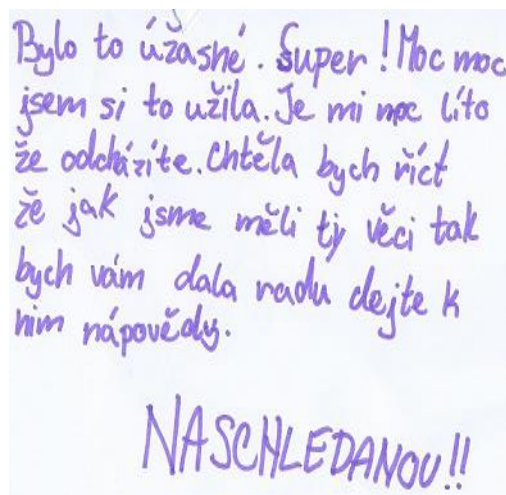 Bylo to úžasné. Super! Moc moc
jsem si to užila. Je mi moc líto
že odcházíte. Chtěla bych říct
že jak jsme měli ty věci tak
bych vám dala radu dejte k
nim nápovědy.
NASCHLEDANOU!!